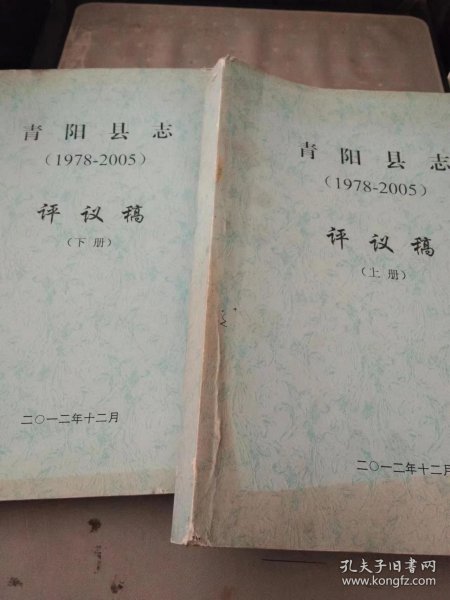 青阳县志
(1978-2005)
评议稿
(下册)
二〇一二年十二月
青阳县志
(1978-2005)
评议稿
(上册)
二〇一二年十二月
孔夫子旧书网
www.kongfz.com